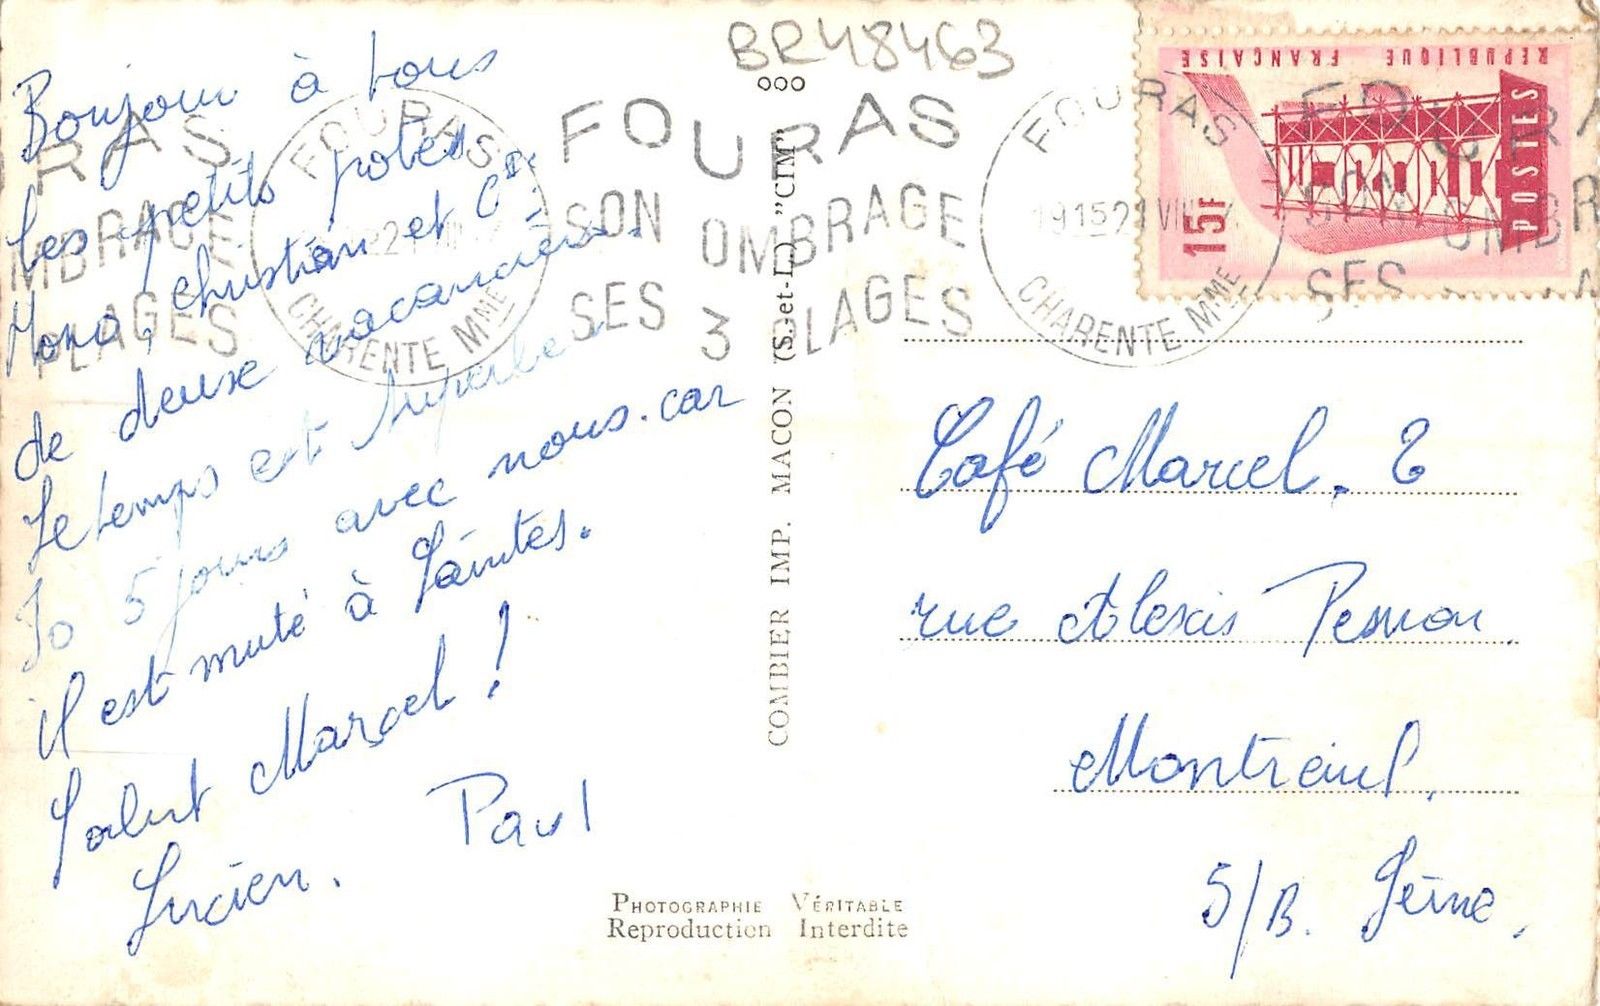 BR48463
ooo
Bonjour à tous
les petits potes
Mono, Christian et Cie
de deux vacanciers.
Le temps est superbe.
Jo 5 jours avec nous. car
il est muté à Saintes.
Salut Marcel !
Lucien. Paul
RAS
MBRAGE
PLAGES
FOURAS
CHARENTE MME
FOURAS
SON OMBRAGE
SES 3 PLAGES
FOURAS
19 15 21 VIII
CHARENTE MME
FOURA
SON OMBR
SES
REPUBLIQUE FRANÇAISE
POSTES
15F
COMBIER IMP. MACON (S.-et-L.) "CIM"
Café Marcel. 2
rue Alexis Pesnon.
Montreuil.
S/B. Seine.
PHOTOGRAPHIE VÉRITABLE
Reproduction Interdite